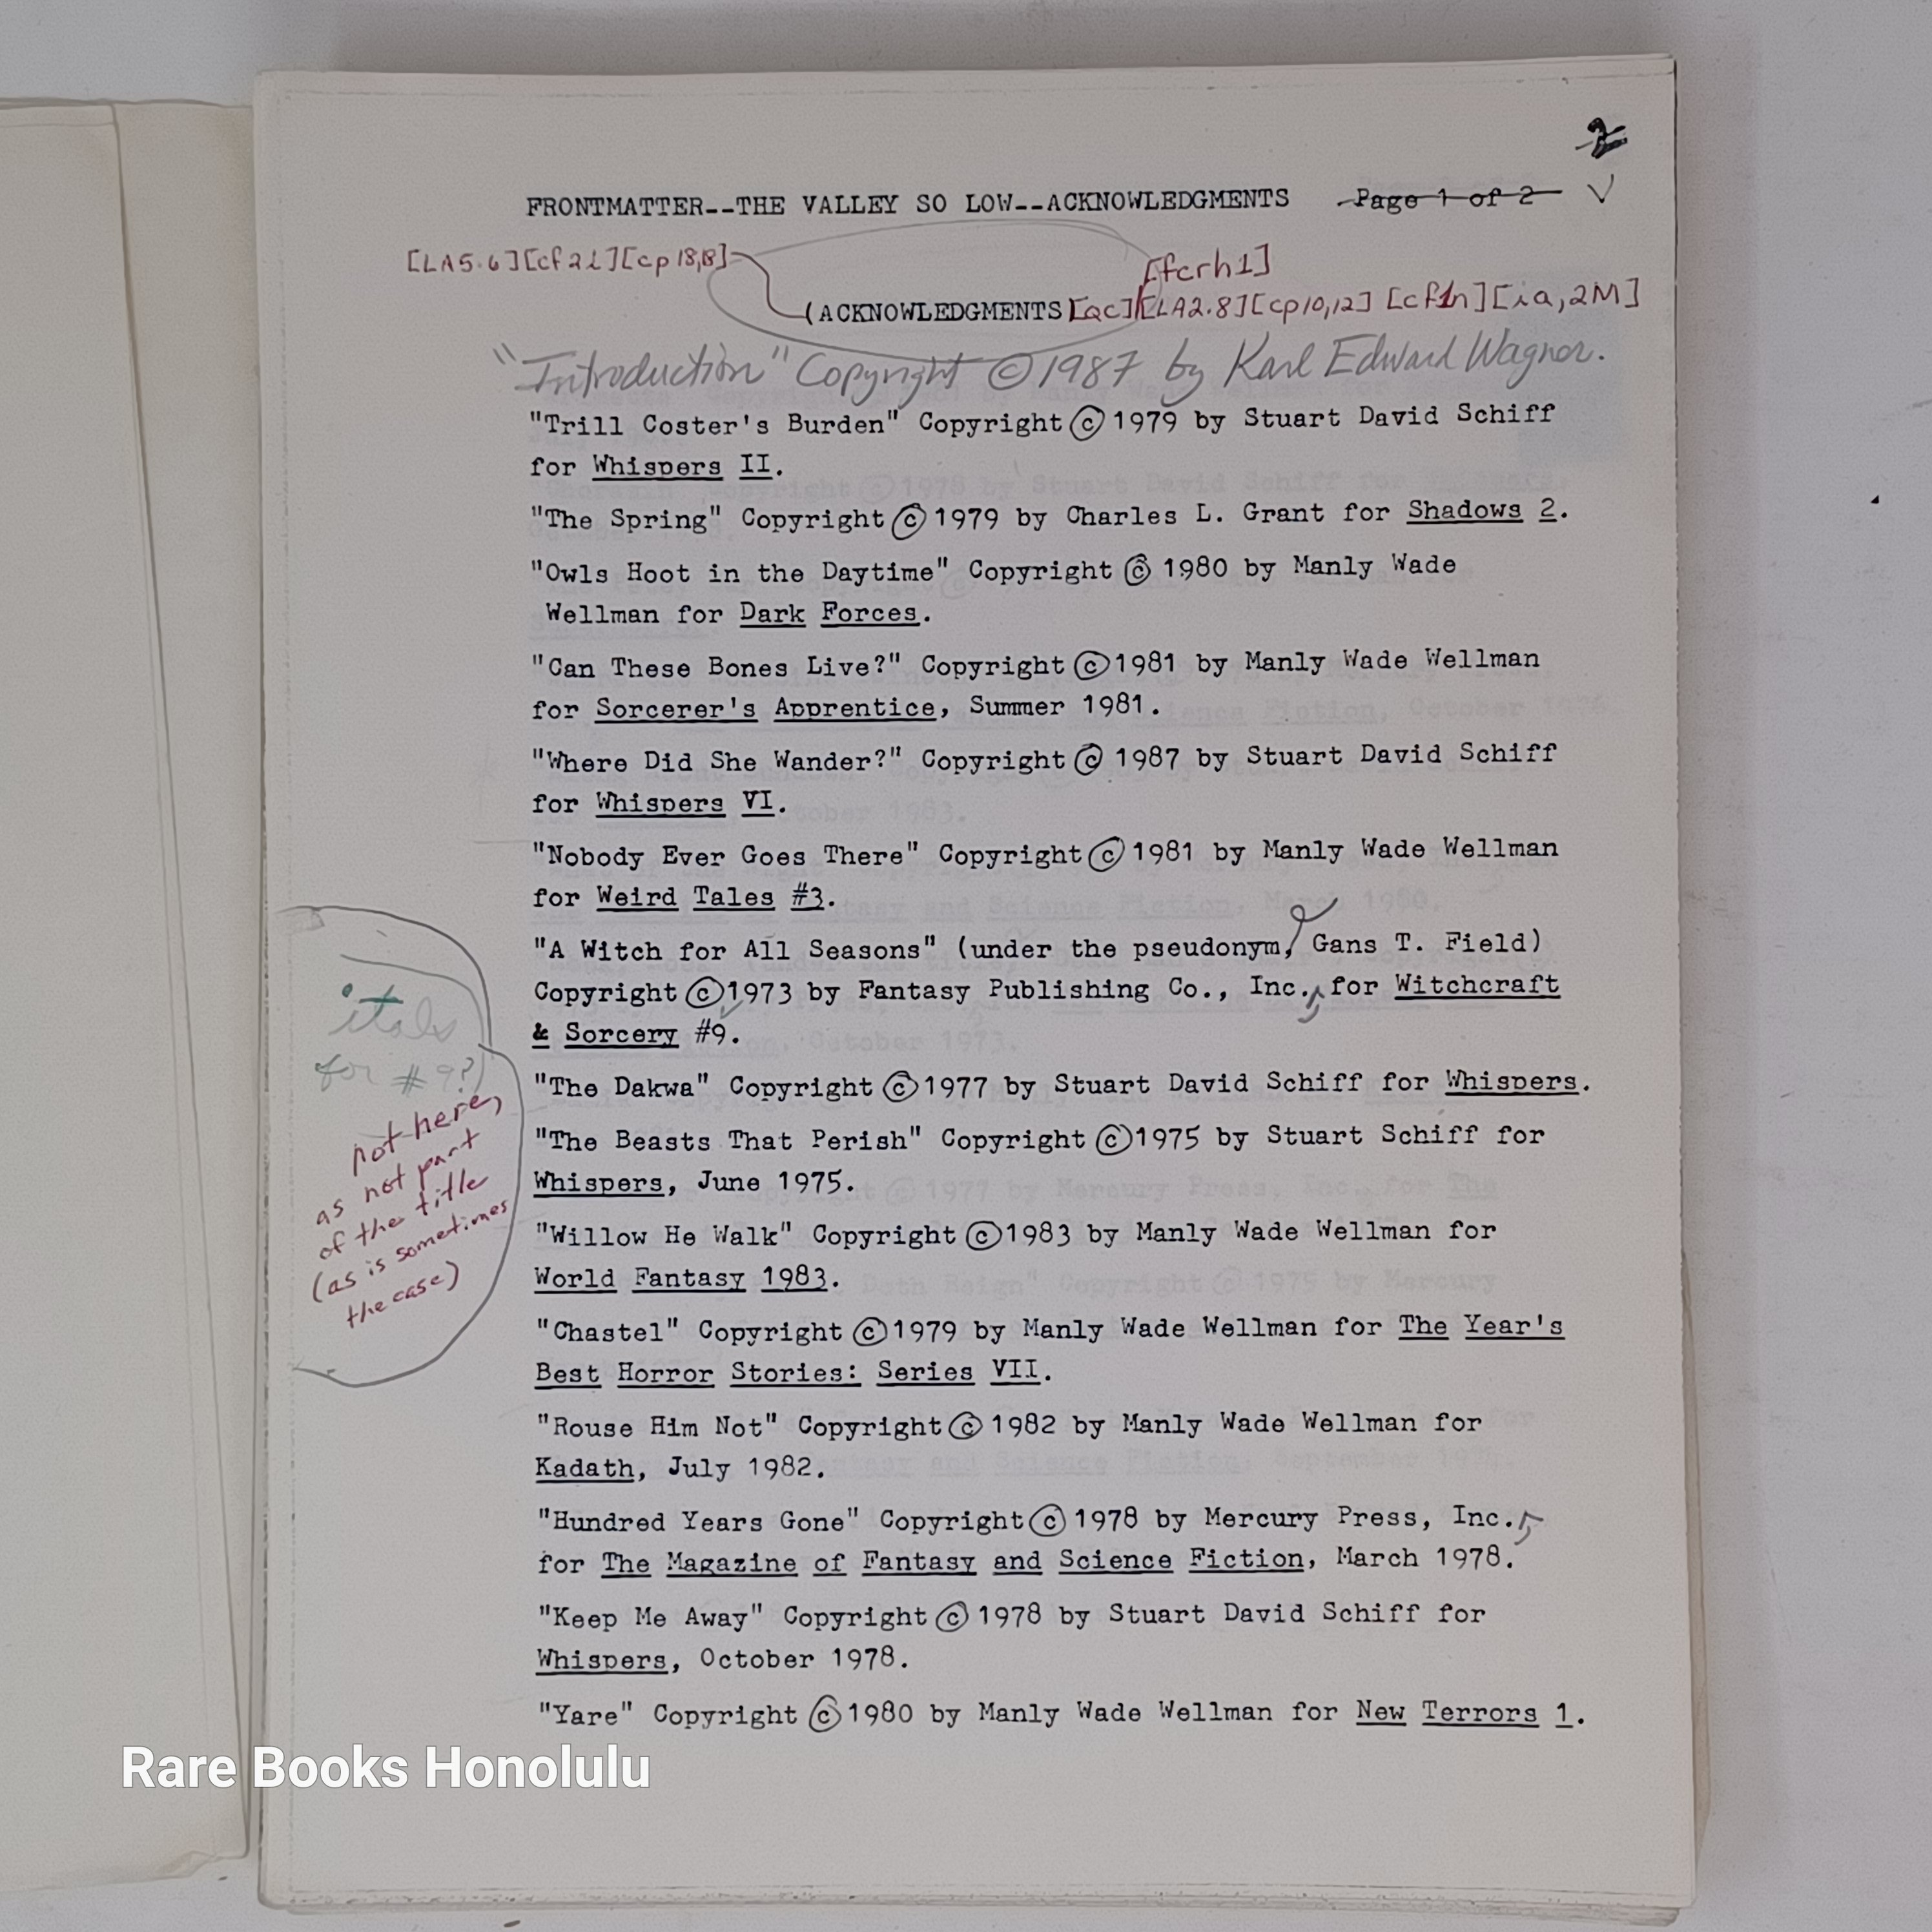 2
FRONTMATTER--THE VALLEY SO LOW--ACKNOWLEDGMENTS Page 1 of 2
[LA5.6][cf2i][cp18,18]
[fcrh1]
(ACKNOWLEDGMENTS[qc][LA2.8][cp10,12] [cf1n][ia,2M]
"Introduction" Copyright ©1987 by Karl Edward Wagner.
"Trill Coster's Burden" Copyright © 1979 by Stuart David Schiff
for Whispers II.
"The Spring" Copyright © 1979 by Charles L. Grant for Shadows 2.
"Owls Hoot in the Daytime" Copyright © 1980 by Manly Wade
Wellman for Dark Forces.
"Can These Bones Live?" Copyright © 1981 by Manly Wade Wellman
for Sorcerer's Apprentice, Summer 1981.
"Where Did She Wander?" Copyright © 1987 by Stuart David Schiff
for Whispers VI.
"Nobody Ever Goes There" Copyright © 1981 by Manly Wade Wellman
for Weird Tales #3.
"A Witch for All Seasons" (under the pseudonym, Gans T. Field)
Copyright © 1973 by Fantasy Publishing Co., Inc., for Witchcraft
& Sorcery #9.
itals
for #9?
not here,
as not part
of the title
(as is sometimes
the case)
"The Dakwa" Copyright © 1977 by Stuart David Schiff for Whispers.
"The Beasts That Perish" Copyright © 1975 by Stuart Schiff for
Whispers, June 1975.
"Willow He Walk" Copyright © 1983 by Manly Wade Wellman for
World Fantasy 1983.
"Chastel" Copyright © 1979 by Manly Wade Wellman for The Year's
Best Horror Stories: Series VII.
"Rouse Him Not" Copyright © 1982 by Manly Wade Wellman for
Kadath, July 1982.
"Hundred Years Gone" Copyright © 1978 by Mercury Press, Inc.,
for The Magazine of Fantasy and Science Fiction, March 1978.
"Keep Me Away" Copyright © 1978 by Stuart David Schiff for
Whispers, October 1978.
"Yare" Copyright © 1980 by Manly Wade Wellman for New Terrors 1.
Rare Books Honolulu